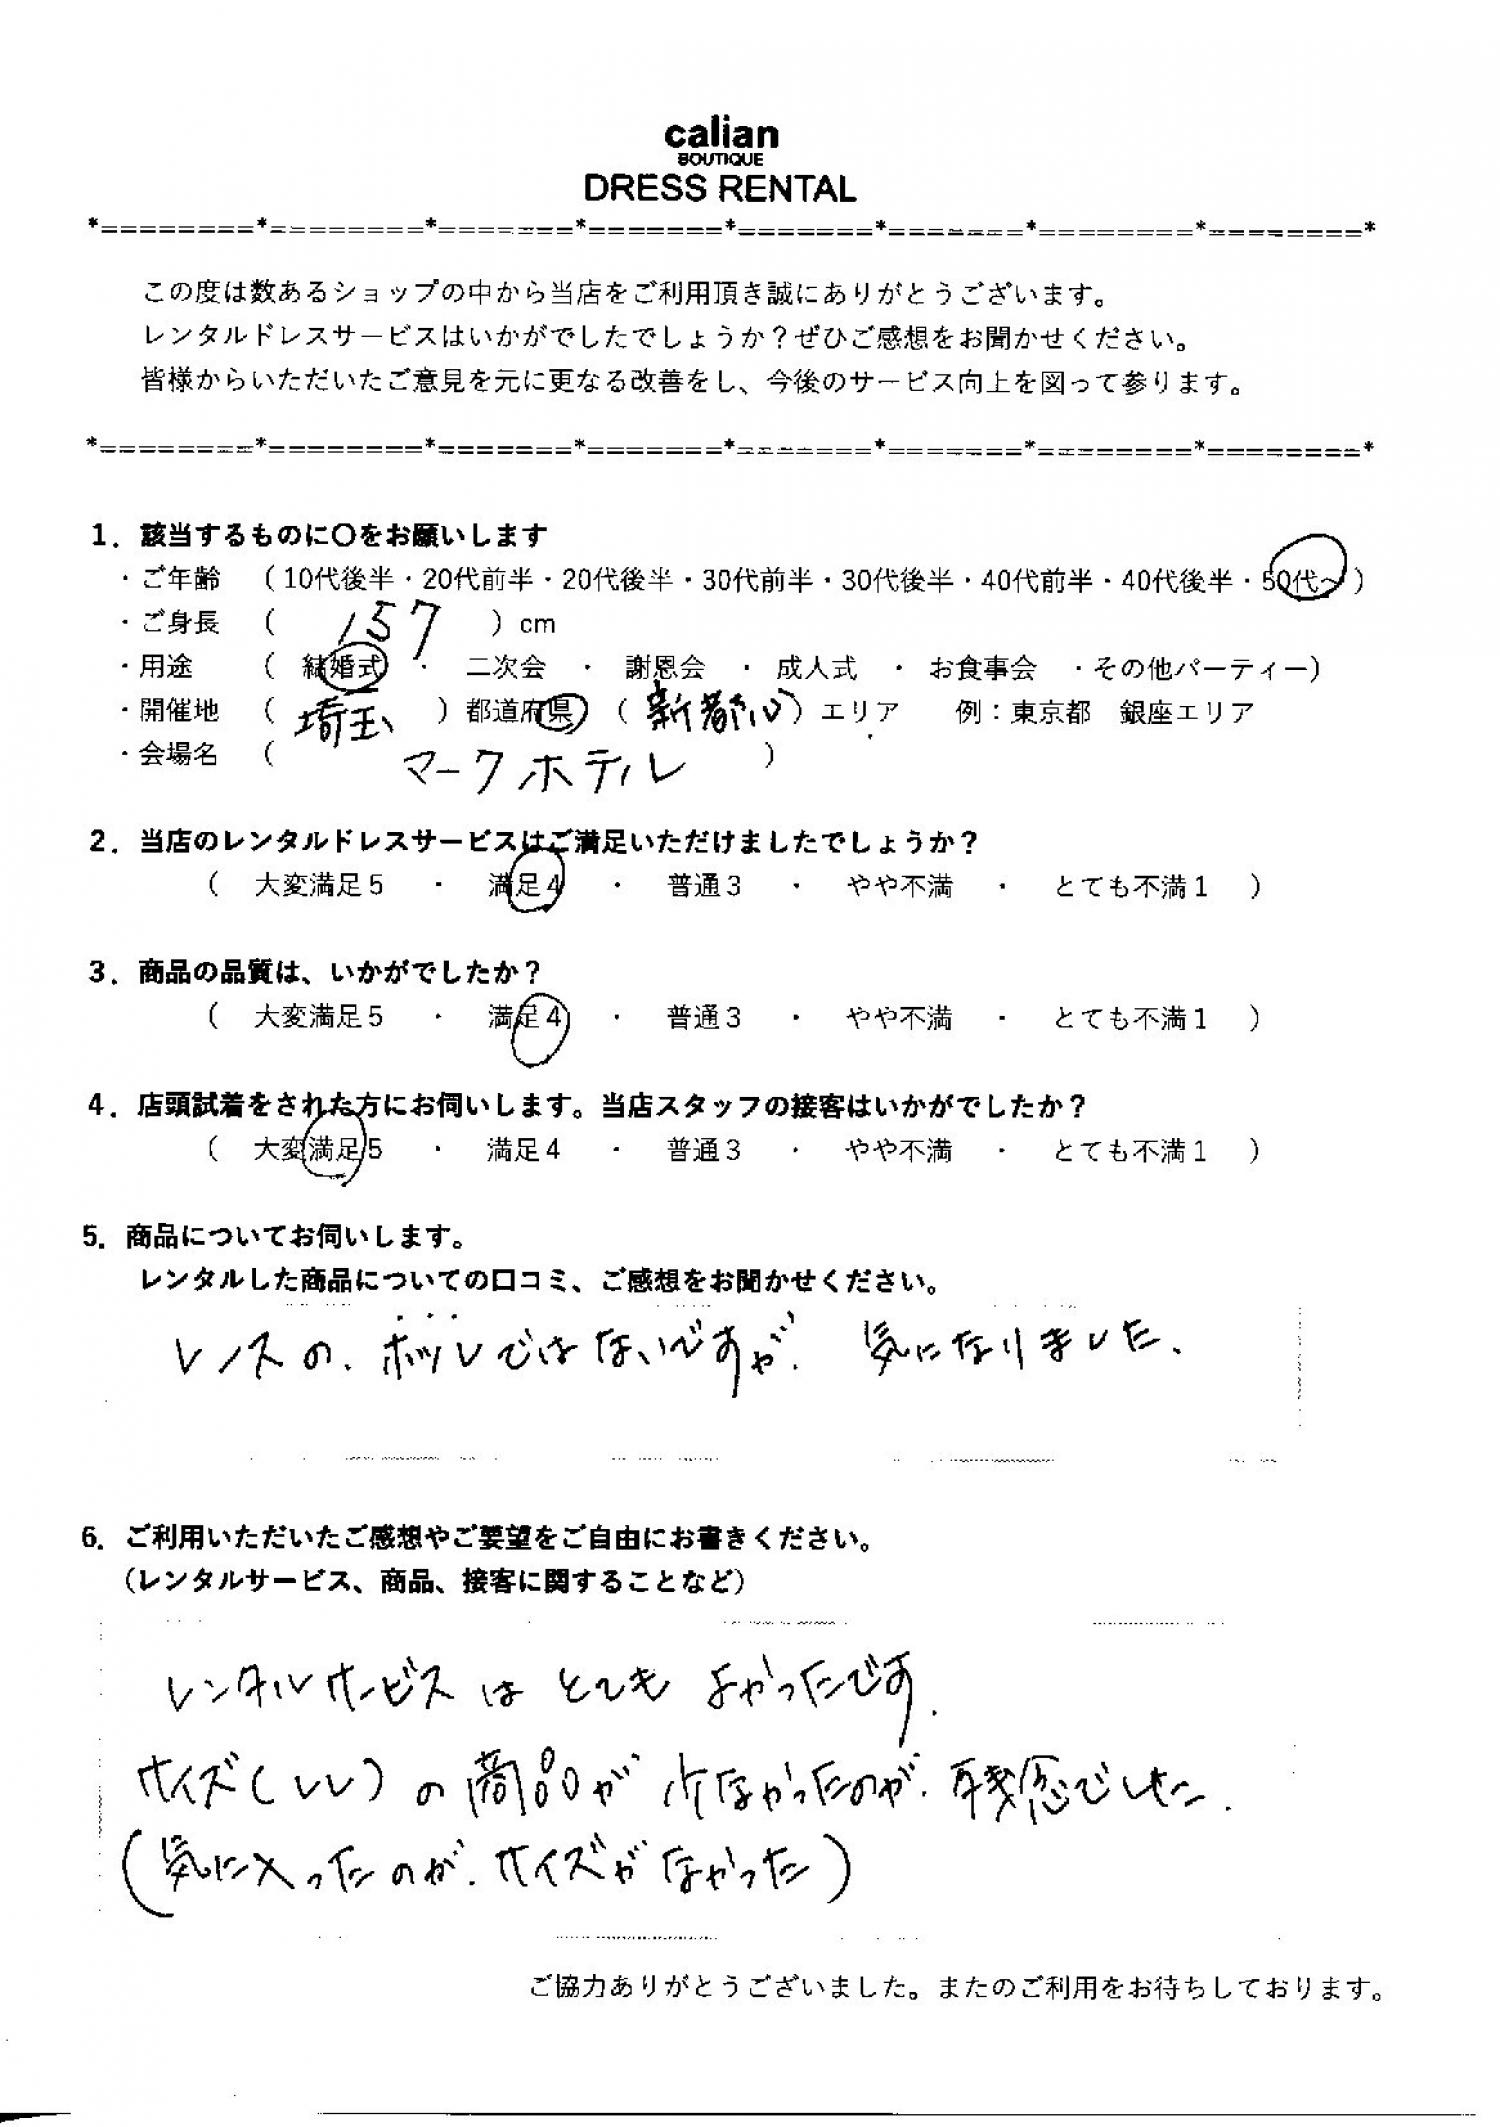 calian
BOUTIQUE
DRESS RENTAL
*========*========*=======*=======*=======*=======*========*========*
この度は数あるショップの中から当店をご利用頂き誠にありがとうございます。
レンタルドレスサービスはいかがでしたでしょうか？ぜひご感想をお聞かせください。
皆様からいただいたご意見を元に更なる改善をし、今後のサービス向上を図って参ります。
*========*========*=======*=======*=======*=======*========*========*
1．該当するものに〇をお願いします
・ご年齢 （10代後半・20代前半・20代後半・30代前半・30代後半・40代前半・40代後半・50代～）
・ご身長 （ 157 ）cm
・用途 （ 結婚式 ・ 二次会 ・ 謝恩会 ・ 成人式 ・ お食事会 ・その他パーティー）
・開催地 （ 埼玉 ）都道府県（ 新都心 ）エリア 例：東京都 銀座エリア
・会場名 （ マークホテル ）
2．当店のレンタルドレスサービスはご満足いただけましたでしょうか？
（ 大変満足５ ・ 満足４ ・ 普通３ ・ やや不満 ・ とても不満１ ）
3．商品の品質は、いかがでしたか？
（ 大変満足５ ・ 満足４ ・ 普通３ ・ やや不満 ・ とても不満１ ）
4．店頭試着をされた方にお伺いします。当店スタッフの接客はいかがでしたか？
（ 大変満足５ ・ 満足４ ・ 普通３ ・ やや不満 ・ とても不満１ ）
5．商品についてお伺いします。
レンタルした商品についての口コミ、ご感想をお聞かせください。
の、ホツレではないですが、気になりました、
6．ご利用いただいたご感想やご要望をご自由にお書きください。
（レンタルサービス、商品、接客に関することなど）
レンタルサービスは とても よかったです.
サイズ(LL)の商品が少なかったのが、残念でした.
(気に入ったのが、サイズがなかった)
ご協力ありがとうございました。またのご利用をお待ちしております。